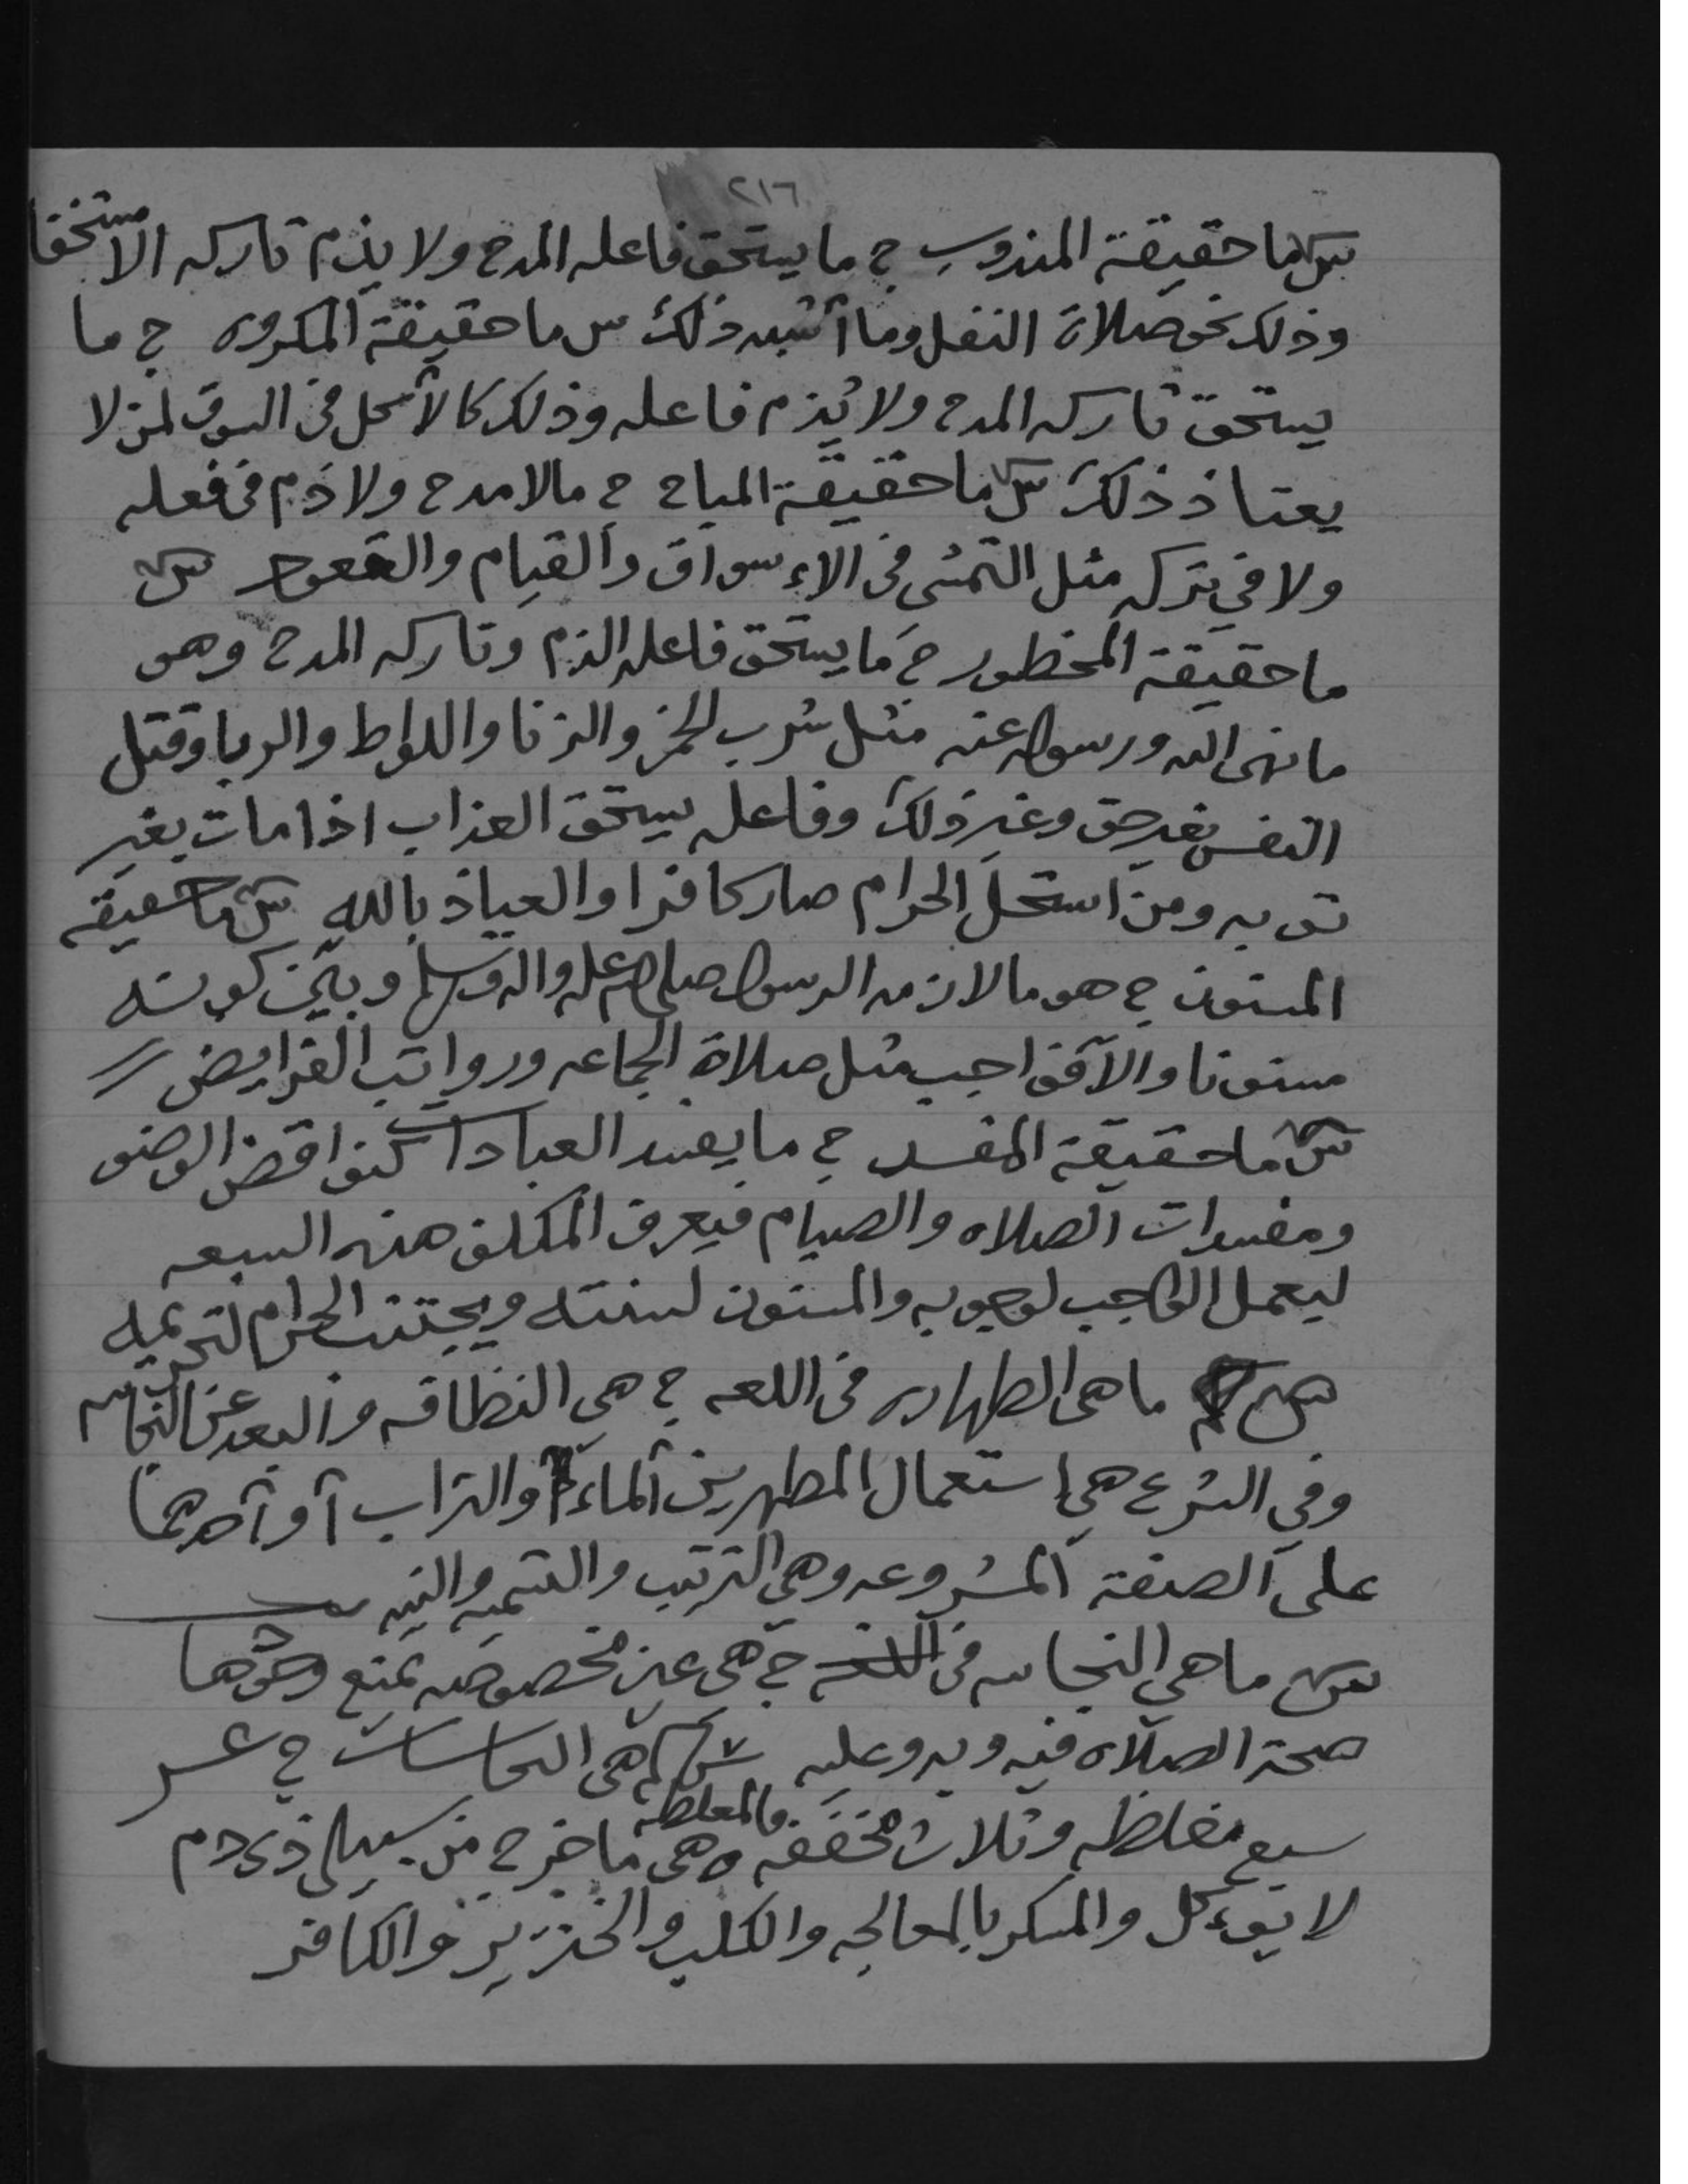 ٢١٦
س ما حقيقة المندوب ج ما يستحق فاعله المدح ولا يذم تاركه الا استخفا
وذلك نحو صلاة النفل وما أشبه ذلك س ما حقيقة المكروه ج ما
يستحق تاركه المدح ولا يُذم فاعله وذلك كالأكل في السوق لمن لا
يعتاذ ذلك س ما حقيقة المباح ج مالا مدح ولا ذم في فعله
ولا في تركه مثل التمشي في الاءسواق والقيام والقعود س
ما حقيقة المحظور ج ما يستحق فاعله الذم وتاركه المدح وهو
ما نهى الله ورسوله عنه مثل شرب الخمر والزنا واللواط والربا وقتل
النفس بغير حق وغير ذلك وفاعله يستحق العذاب اذا مات بغير
توبه ومن استحل الحرام صار كافرا والعياذ بالله س ما حقيقة
المسنون ج هو ما لازمه الرسول صلى الله عليه واله وسلم وبيّن كونه
مسنونا والا فواجب مثل صلاة الجماعه ورواتب الفرايض
س ما حقيقة المفسد ج ما يفسد العبادات كنواقض الوضو
ومفسدات الصلاه والصيام فيعرف المكلف هذه السبعه
ليعمل الواجب لوجوبه والمسنون لسنته ويجتنب الحرام لتحريمه
س ما هي الطهاره في اللعه ج هي النظافه والبعد عن النجاسه
وفي الشرع هي استعمال المطهرين الماء والتراب أو أحدهما
على الصفة المشروعه وهي الترتيب والتسميه والنيه
س ما هي النجاسه في ج هي عين مخصوصه تمنع وجودها
صحة الصلاه فيه وبه وعليه س كم هي النجاسات ج عشر
سبع مغلظه وثلاث مخففه والمغلظه وهي ما خرج من سبيلي ذي دم
لا يوءكل والمسكر بالمعالجه والكلب والخنزير والكافر